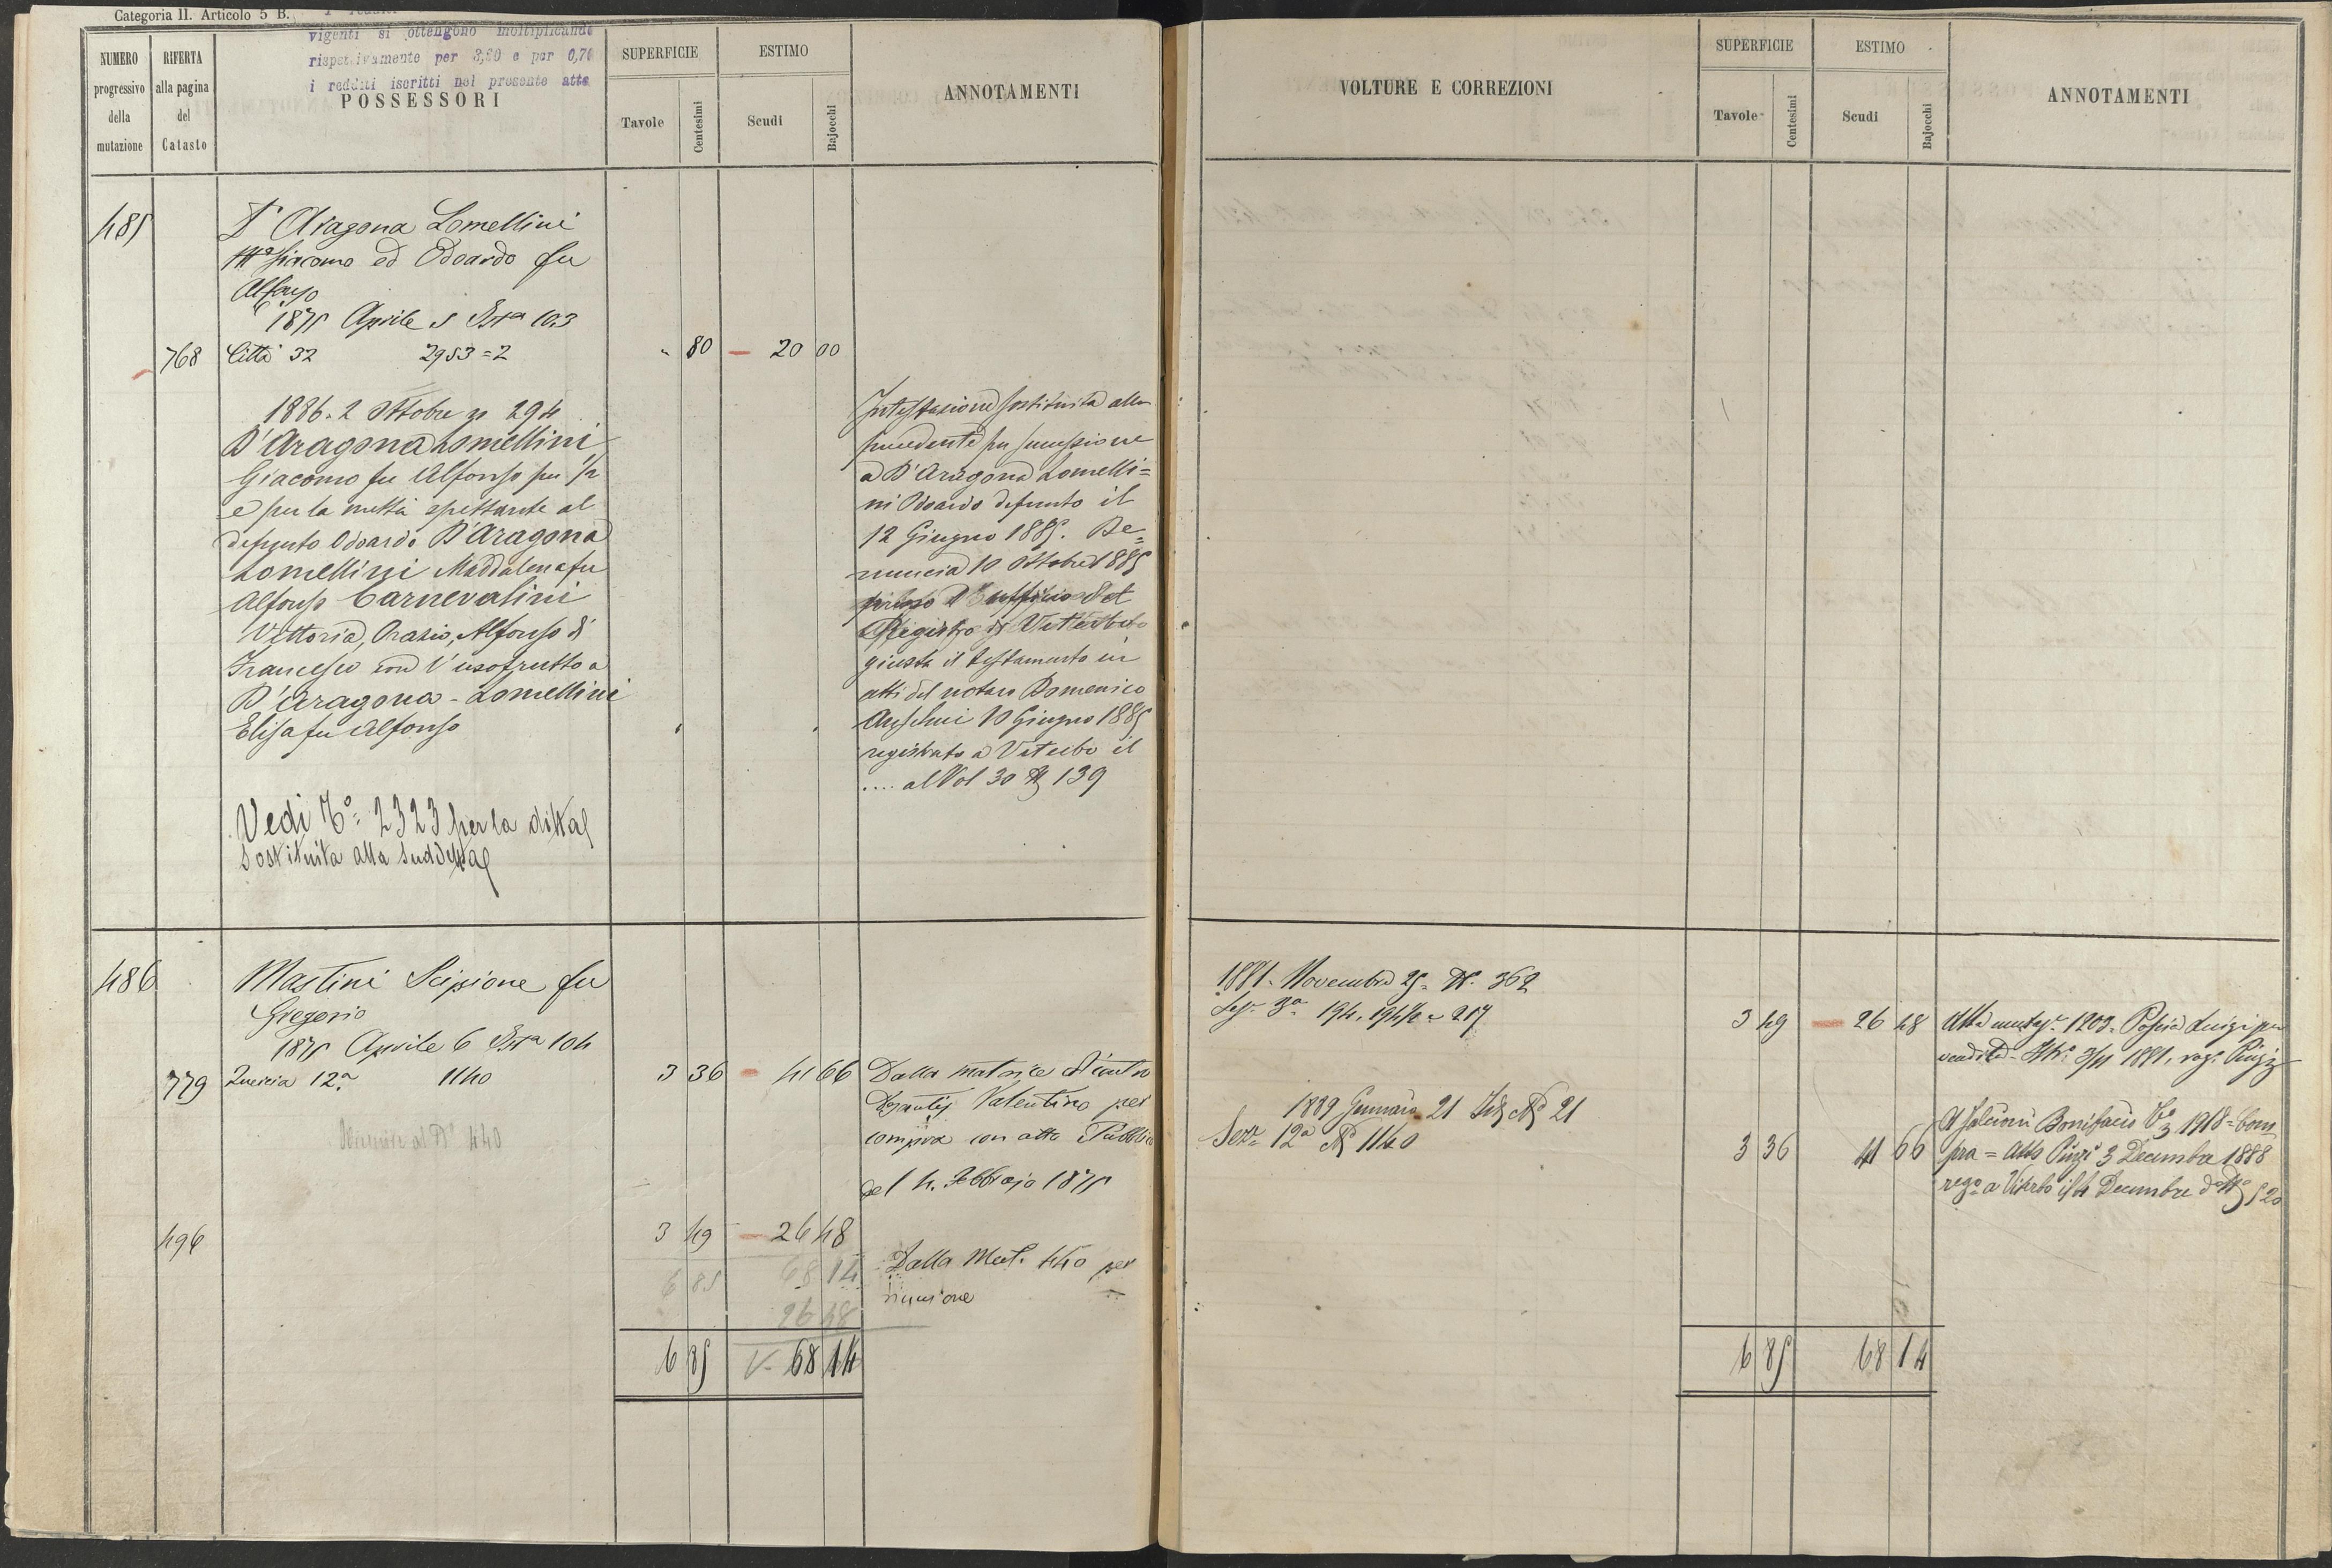 Categoria II. Articolo 5 B.
vigenti si ottengono moltiplicando
rispettivamente per 3,20 e per 0,70
i redditi iscritti nel presente atto
NUMERO
progressivo
della
mutazione
RIFERTA
alla pagina
del
Catasto
POSSESSORI
SUPERFICIE
Tavole
Centesimi
ESTIMO
Scudi
Bajocchi
ANNOTAMENTI
485
D'Aragona Lomellini
Giacomo ed Odoardo fu
Alfonso
1875 Aprile 5 103
768 Città 32 2953=2 " 80 20 00
1886. 2 Ottobre 294
D'Aragona Lomellini
Giacomo fu Alfonso per 1/2
e per la metà spettante al
defunto Odoardo D'Aragona
Lomellini Maddalena fu
Alfonso Carnevalini
Vittoria, Orazio, Alfonso di
Francesco con l'usofrutto a
D'Aragona-Lomellini
Elisa fu Alfonso
Vedi N.º 2323 per la ditta
sostituita alla suddetta
Intestazione sostituita alla
precedente per successione
a D'Aragona Lomelli=
ni Odoardo defunto il
12 Giugno 1885. De=
nuncia 10 Ottobre 1885
presso l'Ufficio del
Registro di Viterbo
giusta il testamento in
atti del notaro Domenico
Anselmi 10 Giugno 1885
registrato a Viterbo il
.... al Vol 30 N 139
486
Mastini Scipione fu
Gregorio
1875 Aprile 6 104
779 Quercia 12ª 1140 3 36 41 66
440
Dalla matrice
Valentino per
compra con atto Pubblico
del 4. Febbrajo 1875
496 3 49 26 48
6 85 68 14
26 48
Dalla Mut. 440 per
riunione
6 85 V. 68 14
VOLTURE E CORREZIONI
SUPERFICIE
Tavole
Centesimi
ESTIMO
Scudi
Bajocchi
ANNOTAMENTI
1881. Novembre 25. N. 362
Sez. 3ª 194. 194/2 e 217 3 49 26 48
Alla mutaz. 1203. Luigi per
vendita 3/11 1881. rog.
1889 Gennaio 21 N 21
Sezº 12ª N 1140 3 36 41 66
A Bonifacio 1918 = Com
pra = Atto Pinzi 3 Decembre 1888
rego a Viterbo il 4 Decembre 520
6 85 68 14